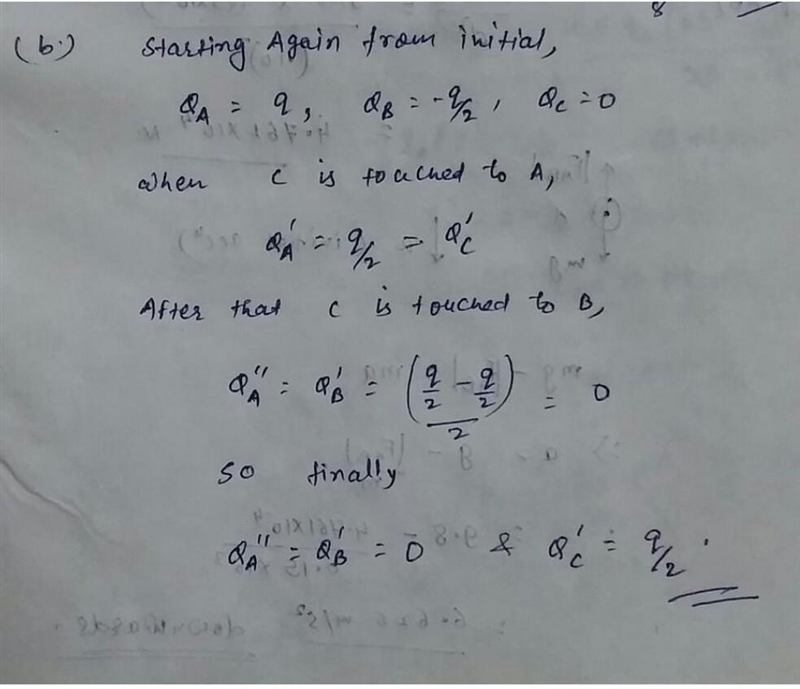 8
(b.) Starting Again from initial,
Q_A = q, Q_B = -q/2, Q_C = 0
when C is touched to A,
Q_A' = q/2 = Q_C'
After that C is touched to B,
Q_A'' = Q_B' = (q/2 - q/2)/2 = 0
So finally
Q_A'' = Q_B' = 0 & Q_C' = q/2.